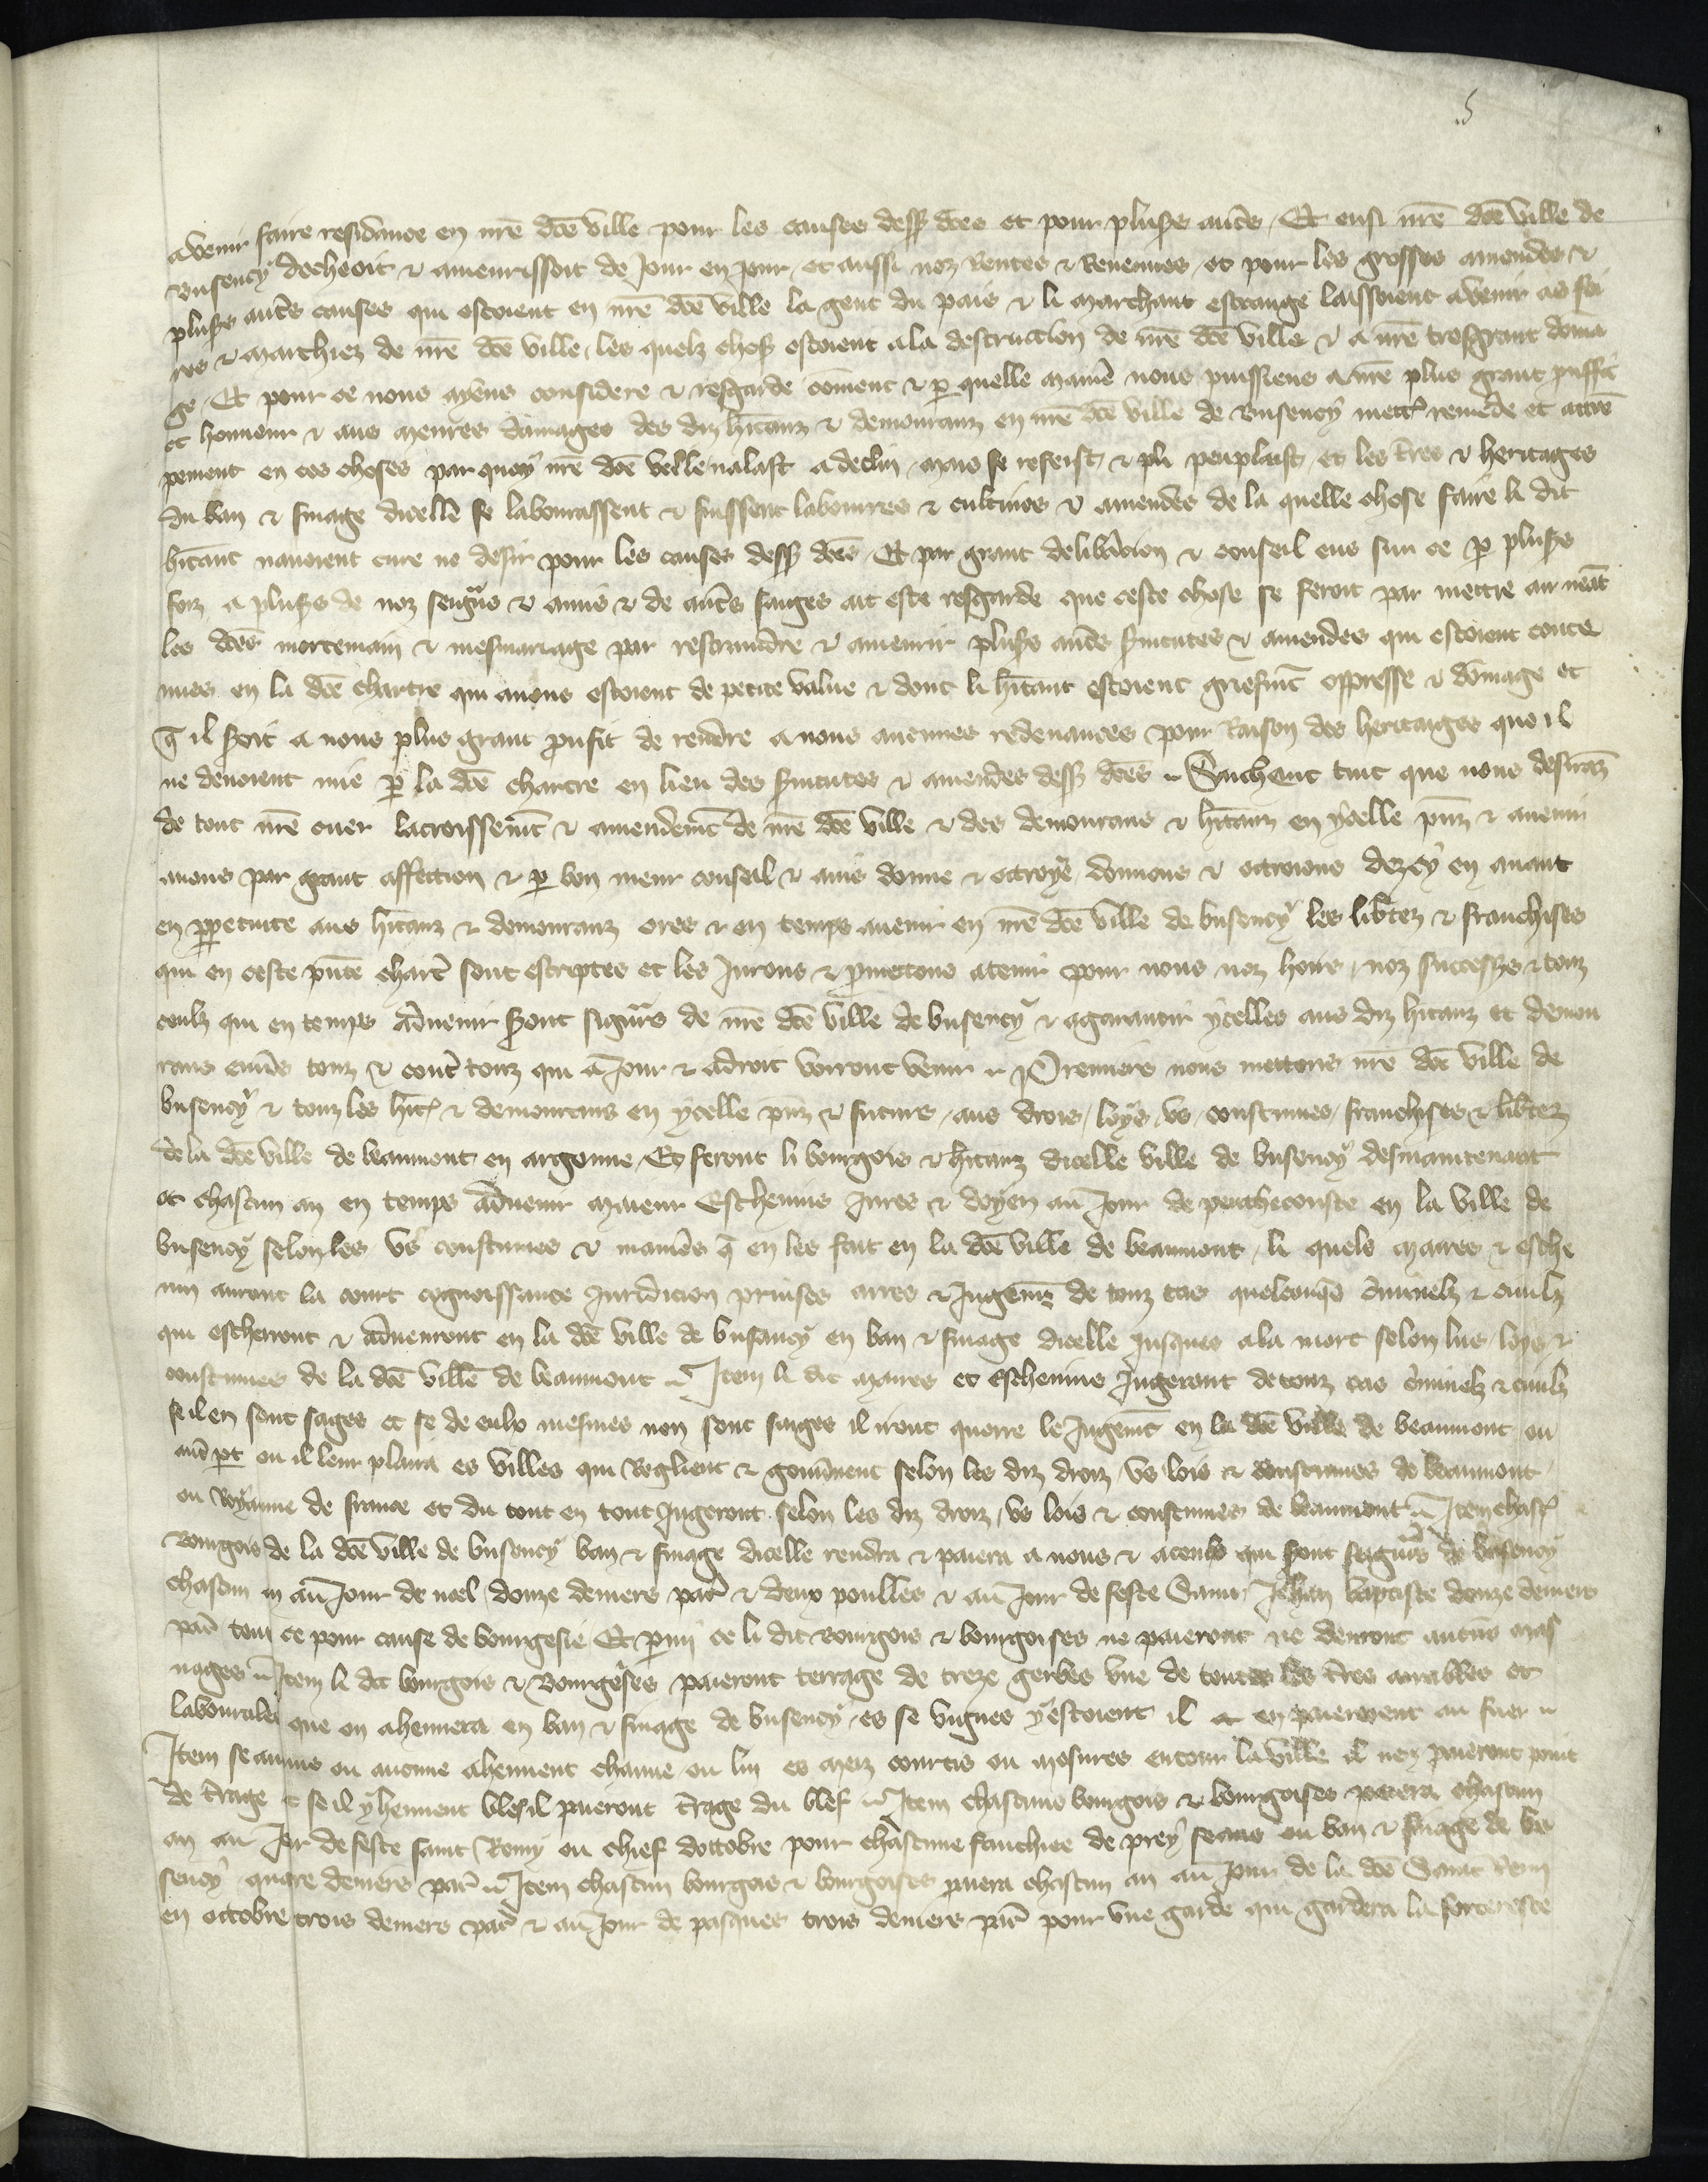 5
avenir faire residance en nr̄e dc̄e ville pour les causes dess9 dc̄es et pour plus̄rs aut̄s / Et ensi nr̄e dc̄e ville de
Busency decheoit & amenrissoit de Jour en Jour / et aussi noz Rentes & Revenues / et pour les grosses amendes &
plus̄rs aut̄s causes qui estoient en nr̄e dc̄e ville la gent du pais & li marchant estrange laissoient avenir as foi
res & marchiez de nr̄e dc̄e ville / les quelz chos9 estoient a la destruction de nr̄e dc̄e ville & a nr̄e tresgrant doma
ge / Et pour ce nous ayens considere & resgarde cōment & p̄ quelle maniē nous puissiens a nr̄e plus grant prouffit
et honneur & aus menres damages des diz hītanz & demouranz en nr̄e dc̄e ville de Busency mettr̄ remede et attre
pement en ces choses par quoy nr̄e dc̄e ville nalast a declin / mais se refeist / & plꝰ peuplaist / et les t̄res & heritages
du ban & finage dicelle se labourassent & fuissent labourees & cultives & amendes de la quelle chose faire li dit
hītant navoient cure ne desir pour les causes dess9 dc̄es / Et par grant delib̄acion & conseil eus sur ce p̄ plus̄rs
foiz a plus̄rs de noz seign̄rs & amis & de aut̄s saiges ait este resgarde que ceste chose se feroit par mettre au neāt
les dc̄es mortemain & mesmariage par restraindre & amenrir plus̄rs aut̄s s̄vitutes & amendes qui estoient conte
nues en la dc̄e chartre qui a nous estoient de petite value & dont li hītant estoient griefmt̄ oppresse & dōmage et
q̄ il seroit a nous plus grant profit de rendre a nous aucunes redevances pour Raison des heritaiges que il
ne devoient mie p̄ la dc̄e chartre en lieu des s̄vitutes & amendes dess9 dc̄es // Sachent tuit que nous desiranz
de tout nr̄e cuer lacroissemt̄ & amendemt̄ de nr̄e dc̄e ville & des demourans & hītanz en ycelle pn̄z & avenir
avons par grant affection & p̄ bon meur conseil & avis donne & octroye / donnons & octroions dez cy en avant
en pp̄etuite aus hītanz & demouranz ores & en temps avenir en nr̄e dc̄e ville de busency les lib̄tez & franchises
qui en ceste pn̄te chart̄ sont escriptes et les Jurons & p̄mettons a tenir pour nous noz hoirs / noz success̄rs & touz
ceulz qui en temps advenir s̄ront sign̄rs de nr̄e dc̄e ville de busency & a garantir ycelles aus diz hītanz et demou
rans env̄rs touz & cont̄ touz qui a Jour & a droit vorront venir // Premiers nous mettons nr̄e dc̄e ville de
busency & touz les hīt9 & demourans en ycelle pn̄z & futurs / aus drois / loys / us / coustumes / franchises & lib̄tez
de la dc̄e ville de beaumont en argonne / Et feront li bourgois & hītanz dicelle ville de busency desmaintenant
et chascun an en temps advenir maieur Eschevins Jures & doyen au Jour de penthecouste en la ville de
busency selon les us coustumes & manies q̄ en les fait en la dc̄e ville de beaumont / li quels maires & esche
vin auront la court cognoissance Juridicion prinses arres & Jugemt̄ de touz cas quelconq̄s c̄minelz & civilz
qui escherront & advenront en la dc̄e ville de busancy en ban & finage dicelle jusques a la mort selon lus / loys &
coustumes de la dc̄e ville de beaumont // Item li dit maires et Eschevins Jugeront de touz cas c̄minelz & civilz
se il en sont sages et se de eulx mesmes non sont saiges il iront querre le Jugemt̄ en la dc̄e ville de beaumont ou
aut̄ pt̄ ou il leur plaira es villes qui Reglient & gouv̄nent selon les diz droiz / us lois & coustumes de beaumont
ou Royaume de france et du tout en tout Jugeront selon les diz droiz / us lois & coustumes de beaumont // Item chasc9
Bourgois de la dc̄e ville de busency ban & finage dicelle rendra & paiera a nous & a ceulx qui s̄ront seign̄rs de busency
chascun an au Jour de noel / douze deniers par̄ & deux poulles & au Jour de feste Saint Jehan baptiste douze deniers
par̄ tout ce pour cause de bourgesie Et p̄mi ce li dit Bourgois & bourgoises ne paieront ne devront aucūs mas
nages // Item li dit bourgois & Bourgoises paieront terrage de treze gerbes une de toutes les t̄res arrables et
labourales que on ahennera en ban & finage de busency / es se vignes y estoient il en paieroient au fuer //
Item se aucuns ou aucune ahennent chanve ou lin es meiz courtis ou mosures entour la ville il nen paieront point
de t̄rage & se il y hennent blef il paieront t̄rage du blef // Item chascuns bourgois & bourgoises paiera chascun
an au Jor de feste saint Remy ou chief doctobre pour chascune fauchiee de prey seans ou ban & finage de bu
sency quatre deniers par̄ // Item chascun bourgois & bourgoises paiera chascun an au Jour de la dc̄e Saint Remi
en octobre trois deniers par̄ & au Jour de pasques trois deniers par̄ pour une garde qui gardera la forteresce